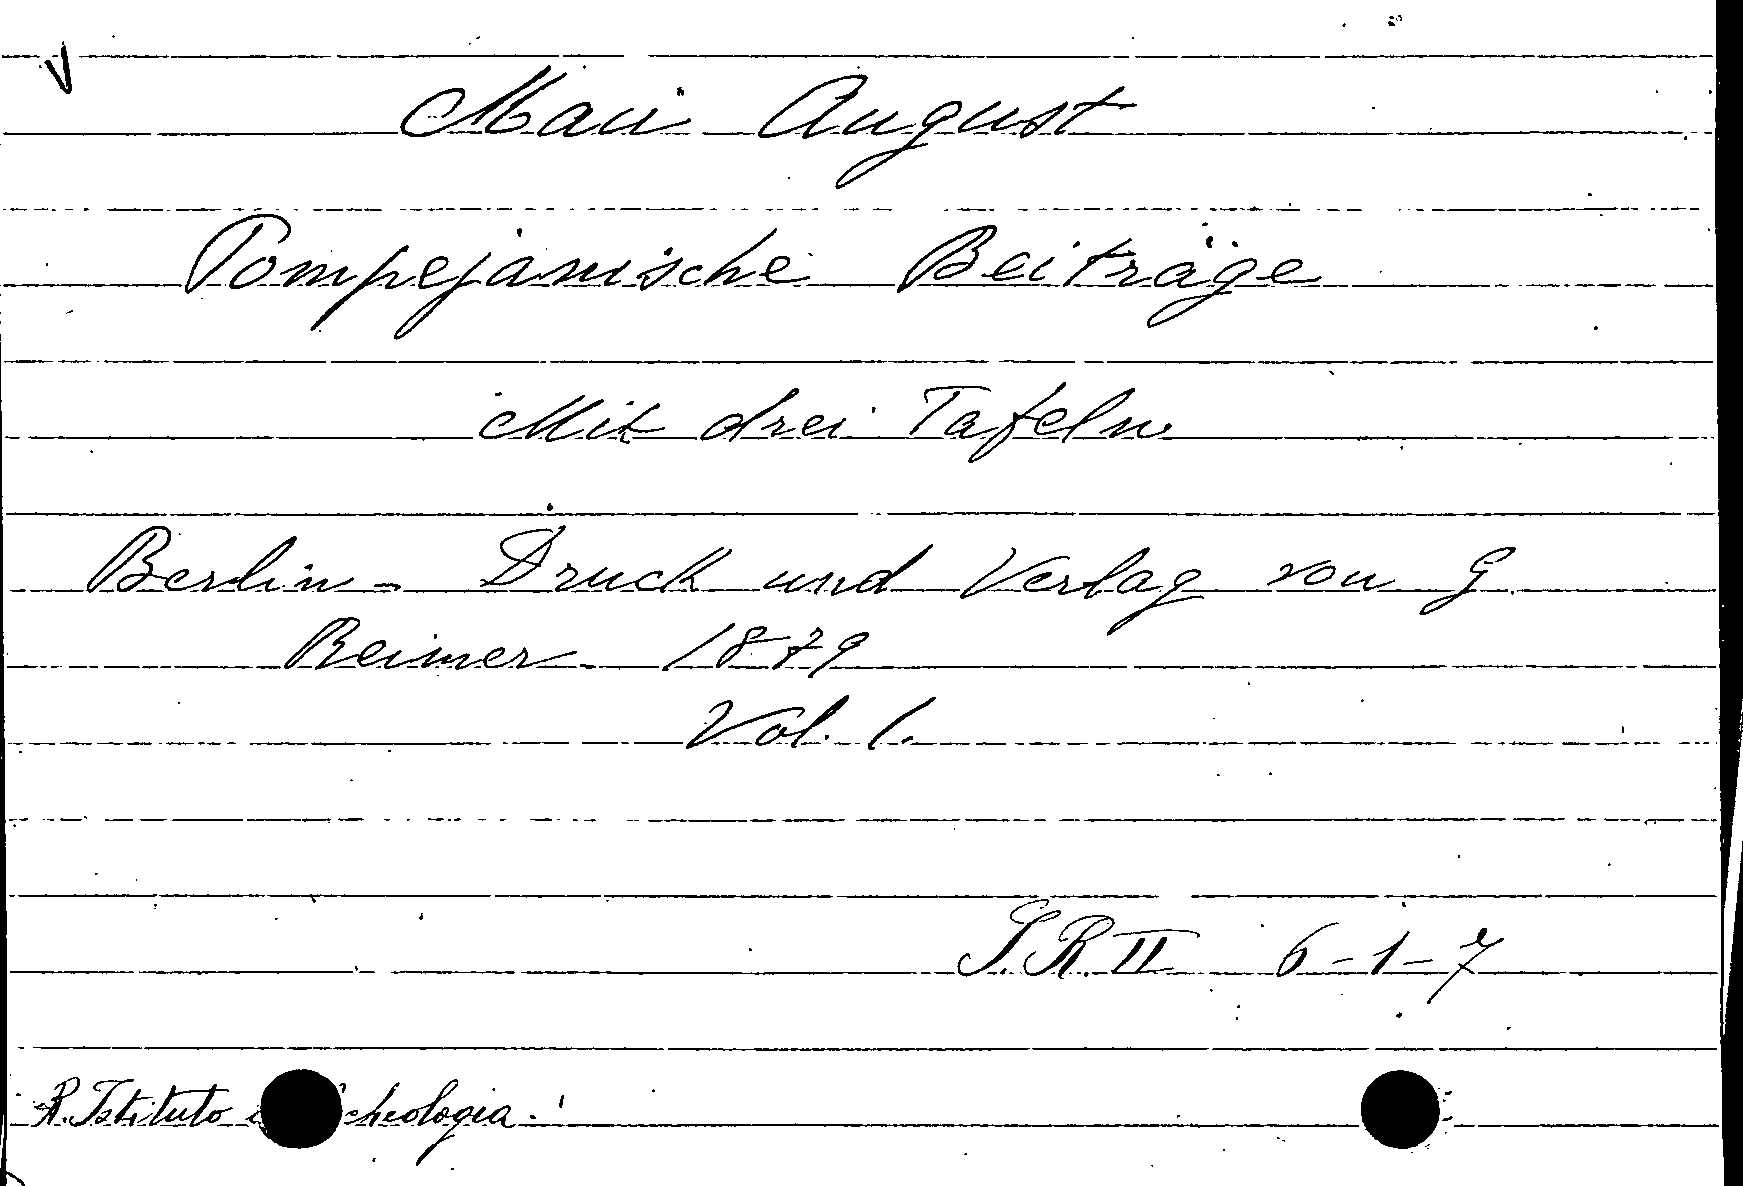 Mau August
Pompejanische Beiträge
Mit drei Tafeln
Berlin - Druck und Verlag von G
Reimer 1879
Vol. 1.
S.R. II 6-1-7
R. Istituto cheologia.